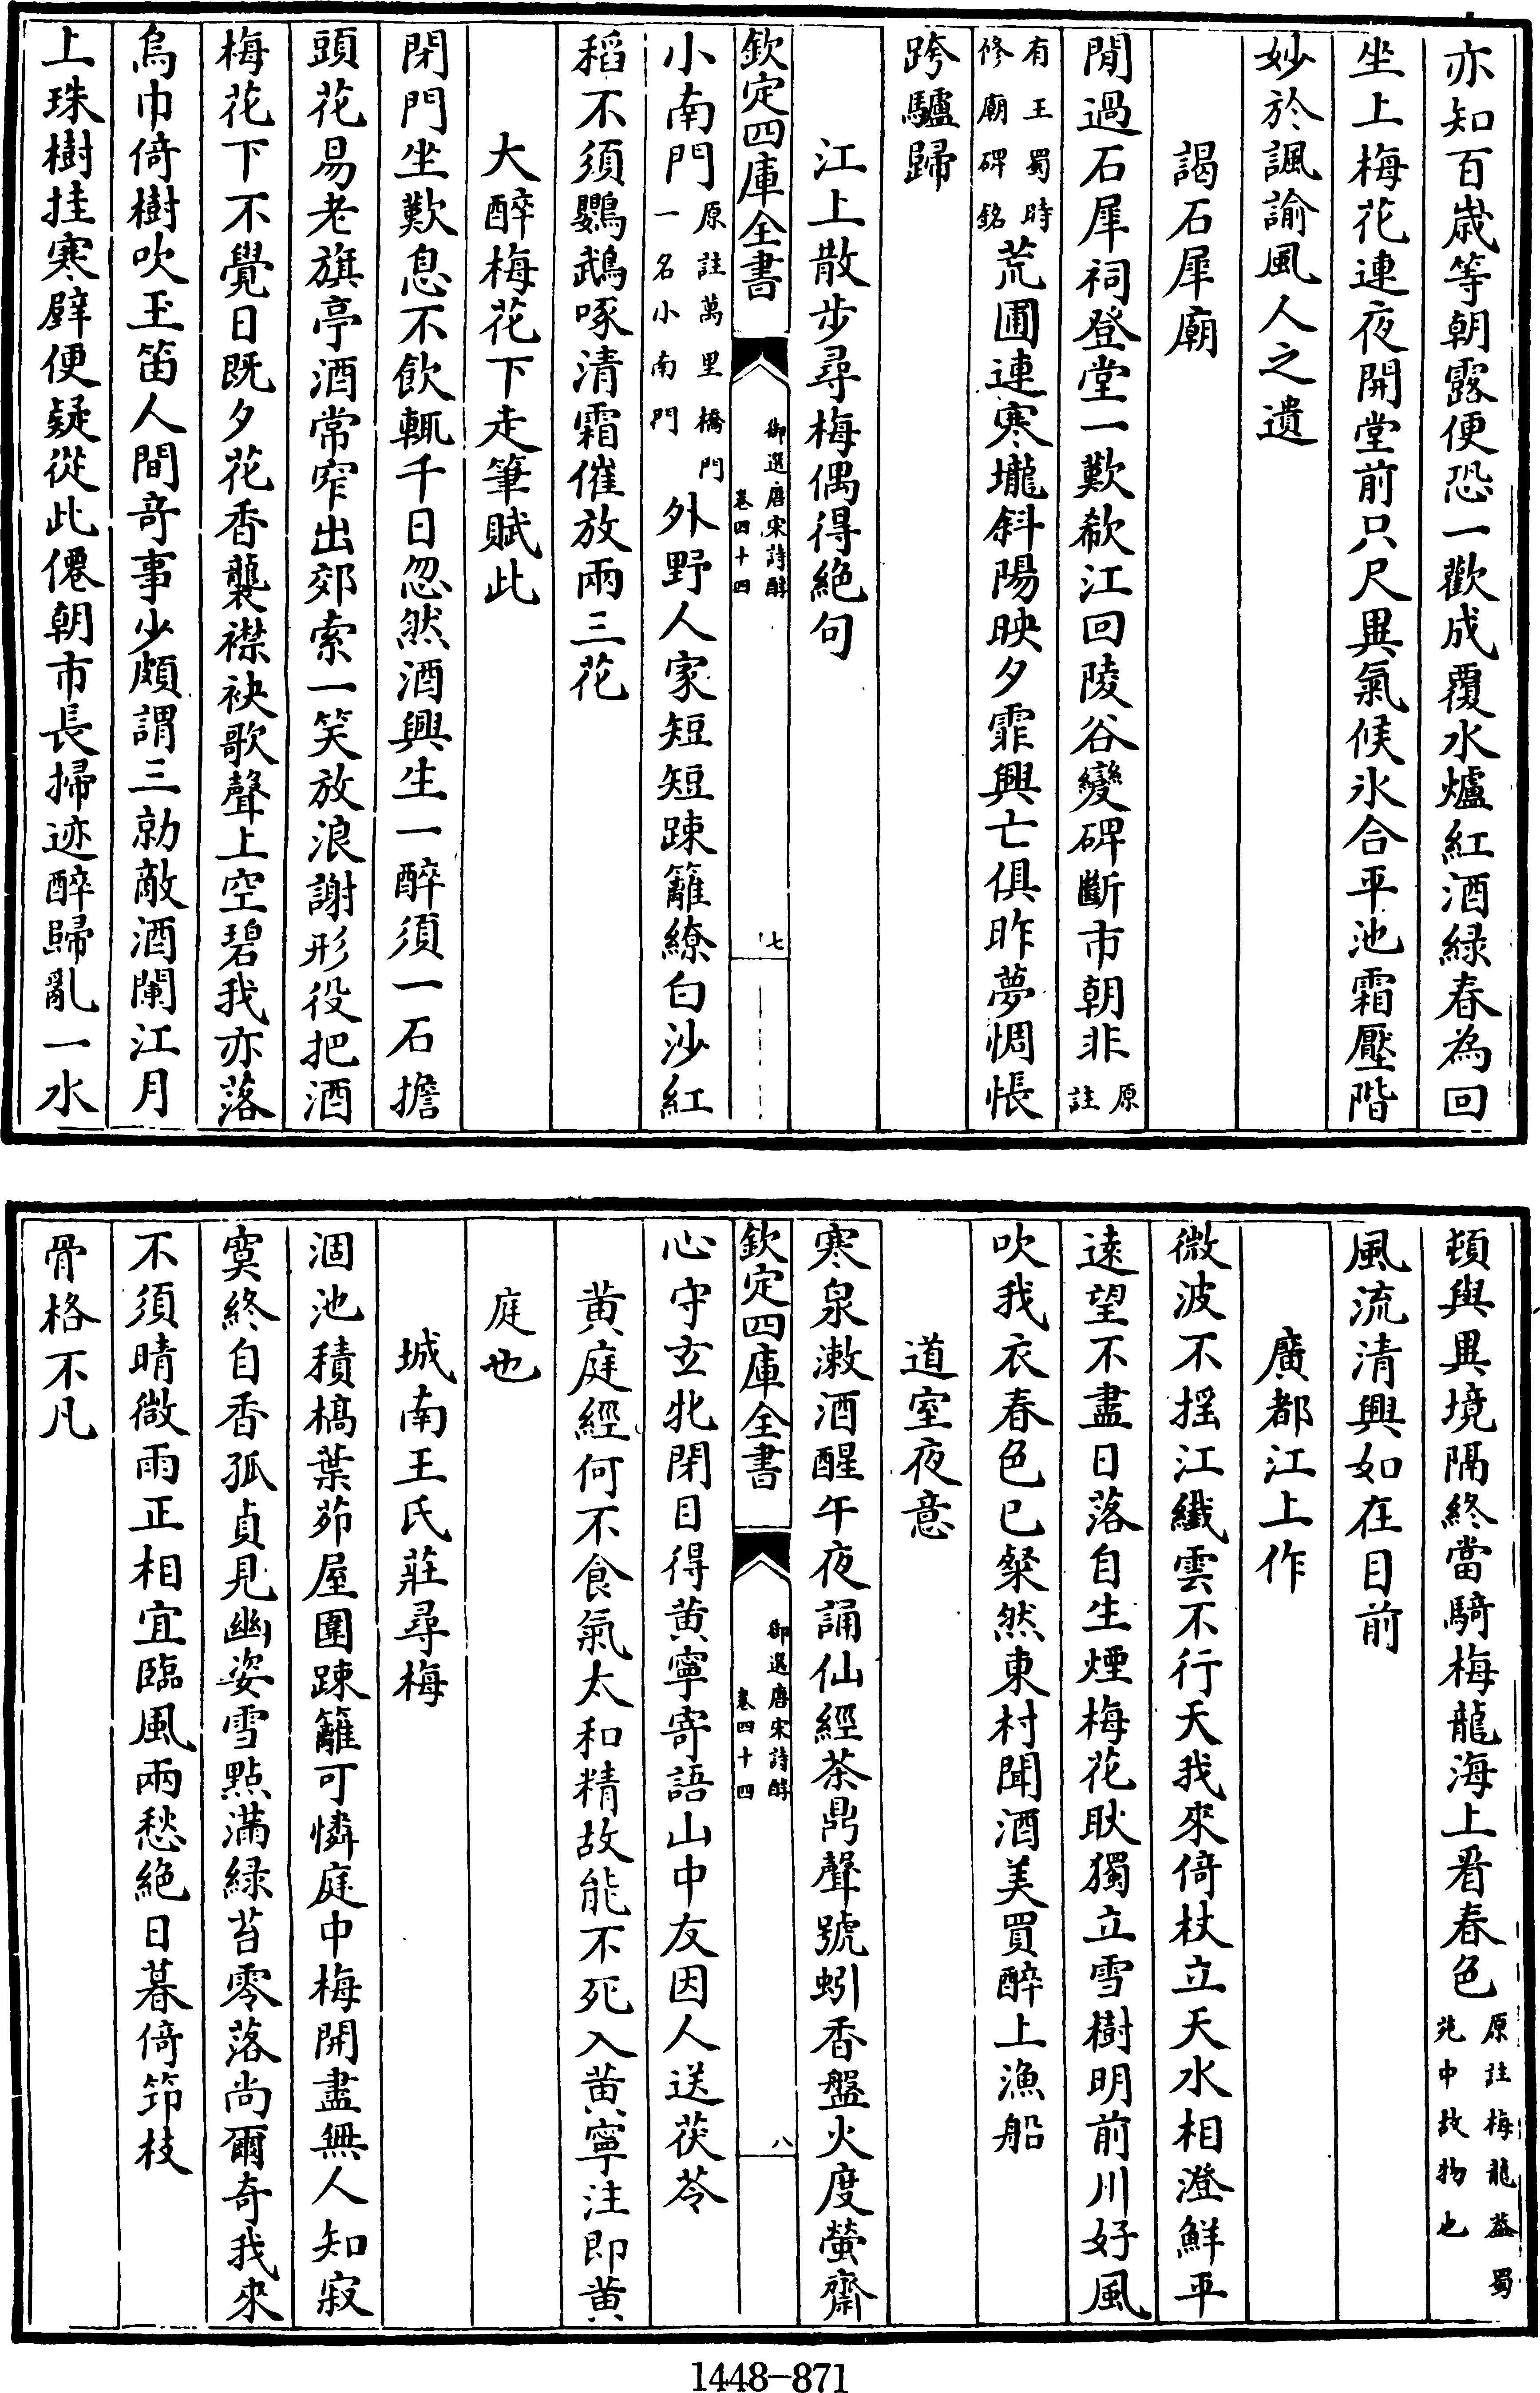 亦知百歲等朝露便恐一歡成覆水爐紅酒緑春為回
坐上梅花連夜開堂前只尺異氣候氷合平池霜壓階
妙於諷諭風人之遺
謁石犀廟
閒過石犀祠登堂一歎欷江回陵谷變碑斷市朝非原註
有王蜀時修廟碑銘荒圃連寒壠斜陽映夕霏興亡俱昨夢惆悵
跨驢歸
江上散步尋梅偶得絶句
欽定四庫全書
御選唐宋詩醇
卷四十四
七
小南門原註萬里橋門一名小南門外野人家短短踈籬繚白沙紅
稻不須鸚鵡啄清霜催放兩三花
大醉梅花下走筆賦此
閉門坐歎息不飲輒千日忽然酒興生一醉須一石擔
頭花易老旗亭酒常窄出郊索一笑放浪謝形役把酒
梅花下不覺日既夕花香襲襟袂歌聲上空碧我亦落
烏巾倚樹吹玉笛人間竒事少頗謂三勍敵酒闌江月
上珠樹挂寒璧便疑從此僊朝市長掃迹醉歸亂一水
頓與異境隔終當騎梅龍海上看春色原註梅龍葢蜀苑中故物也
風流清興如在目前
廣都江上作
微波不揺江纖雲不行天我來倚杖立天水相澄鮮平
逺望不盡日落自生煙梅花耿獨立雪樹明前川好風
吹我衣春色已粲然東村聞酒美買醉上漁船
道室夜意
寒泉漱酒醒午夜誦仙經茶鼎聲號蚓香盤火度螢齋
欽定四庫全書
御選唐宋詩醇
卷四十四
八
心守玄牝閉目得黄寧寄語山中友因人送茯苓
黄庭經何不食氣太和精故能不死入黄寧注即黄
庭也
城南王氏莊尋梅
涸池積槁葉茆屋圍踈籬可憐庭中梅開盡無人知寂
寞終自香孤貞見幽姿雪點滿緑苔零落尚爾奇我來
不須晴微雨正相宜臨風兩愁絶日暮倚笻枝
骨格不凡
1448-871